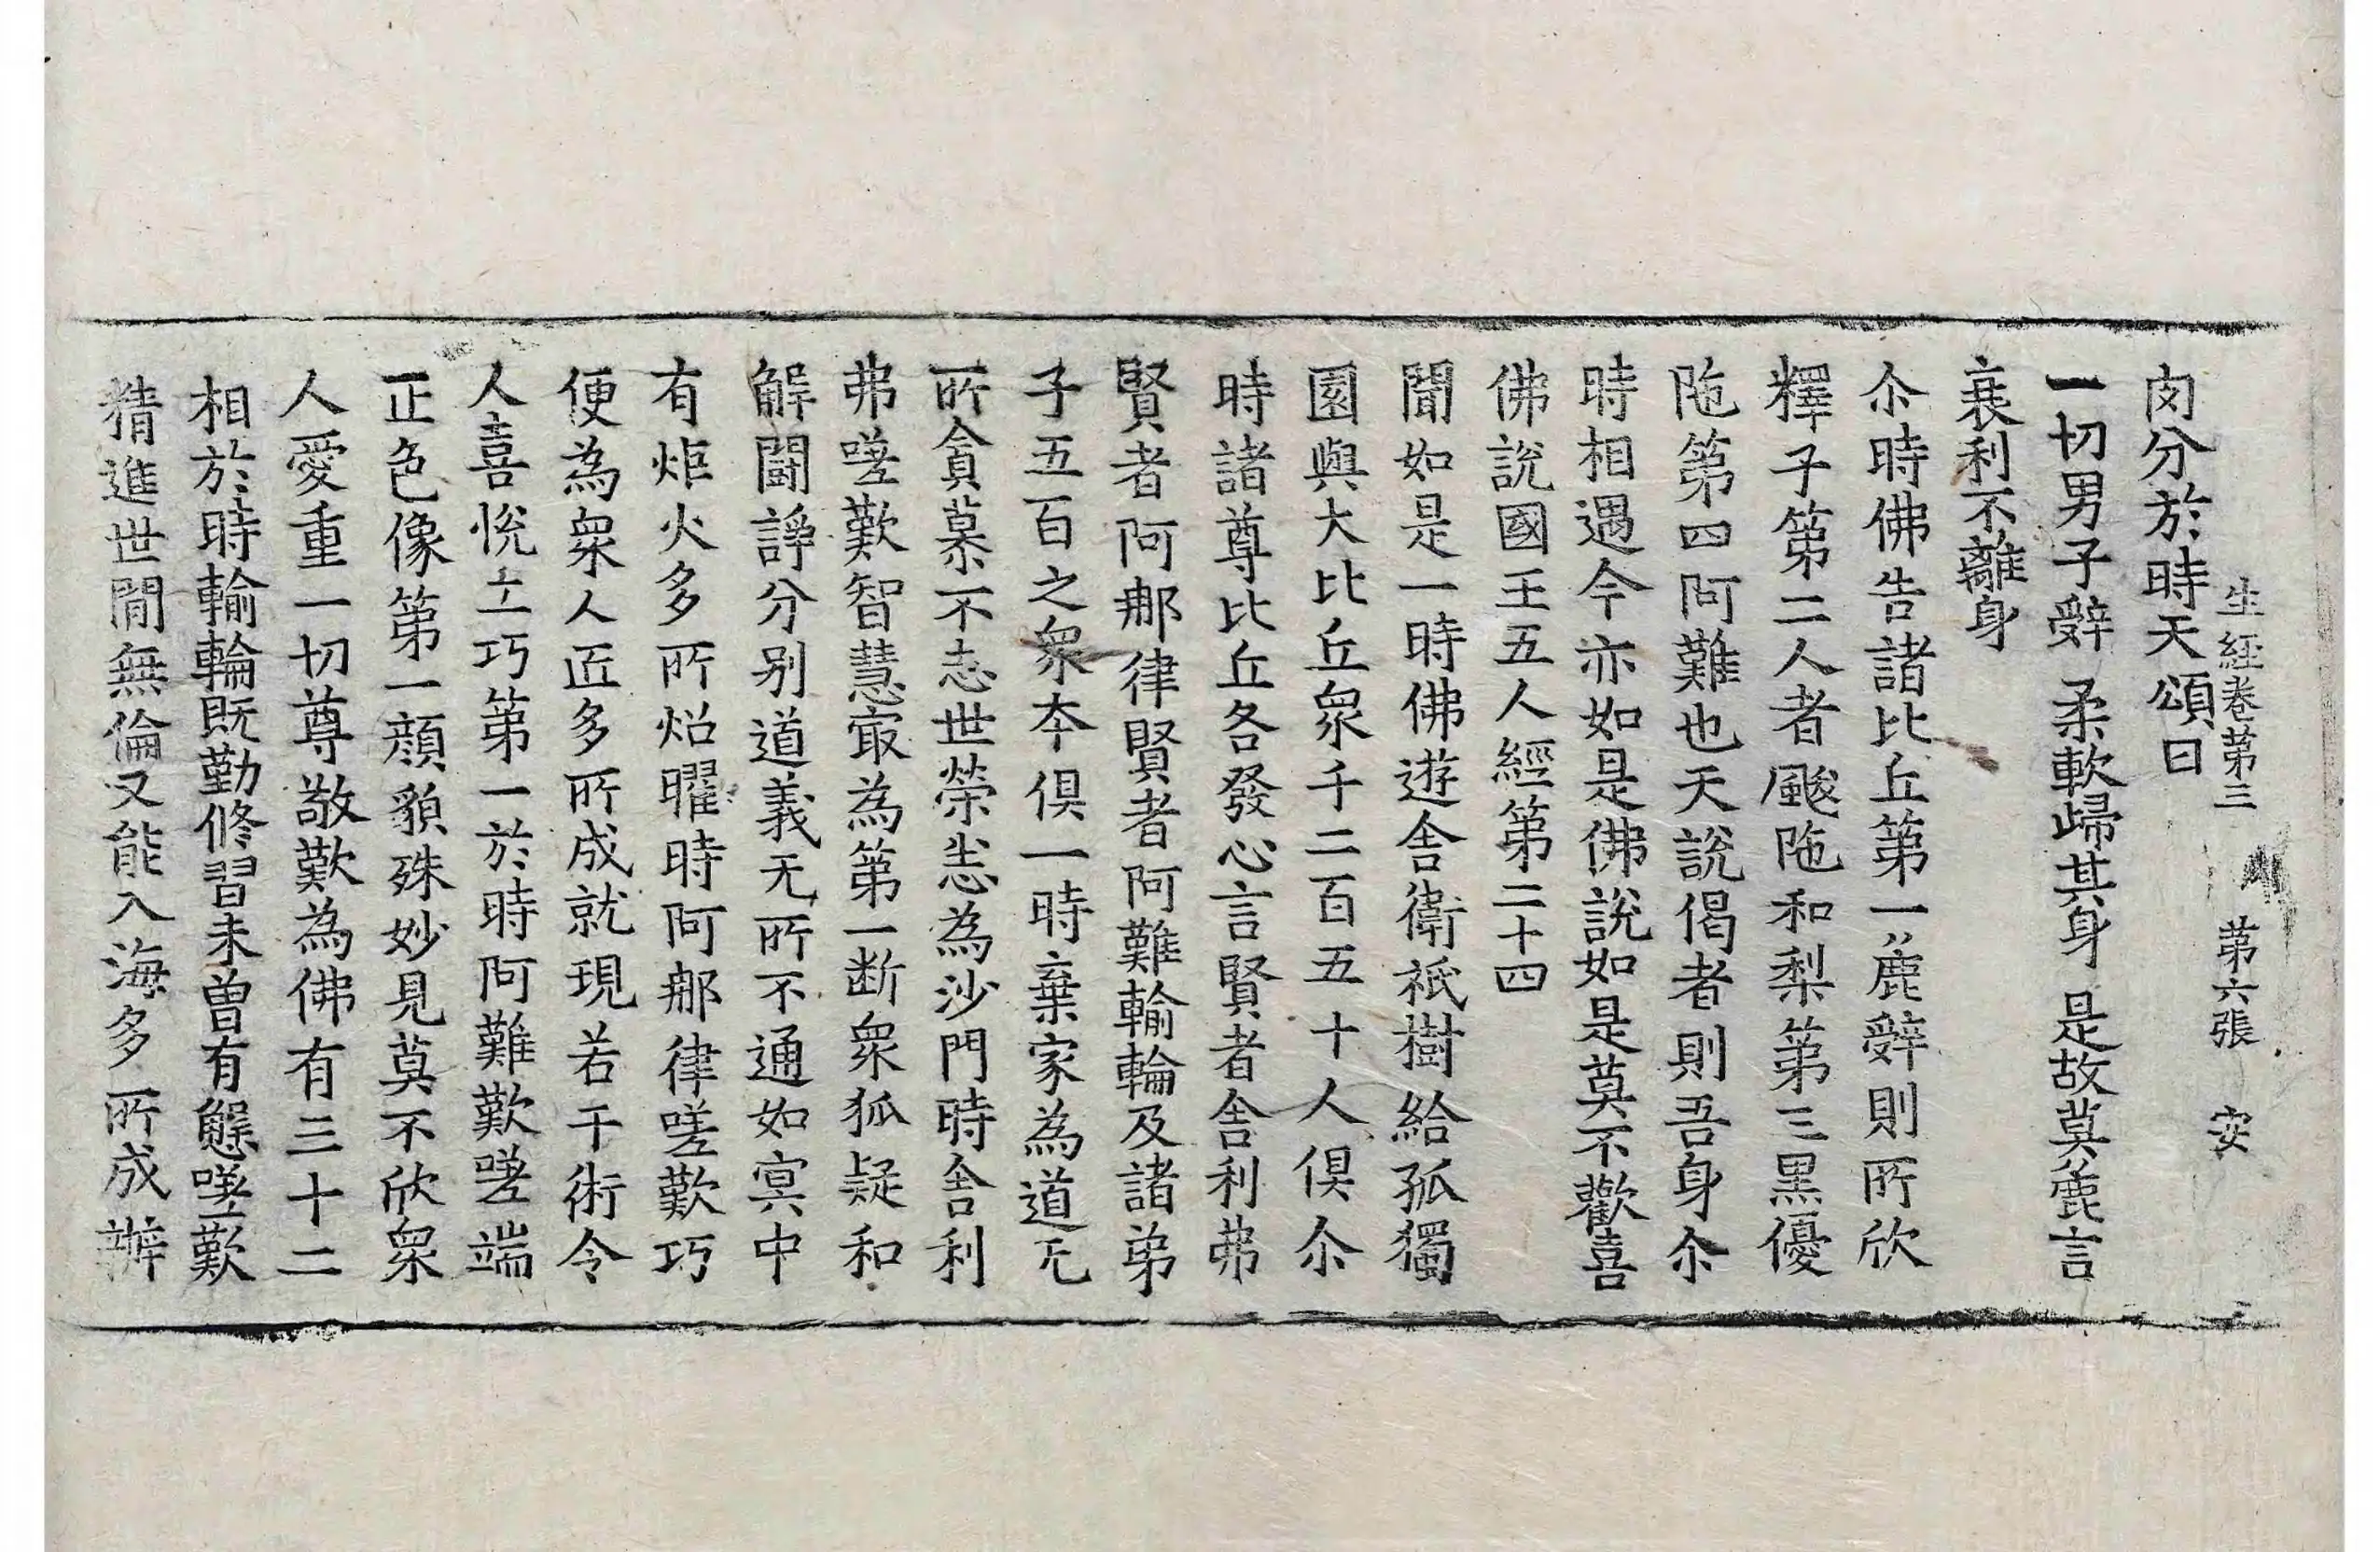 生經卷第三 第六張 安
肉分於時天頌曰
一切男子辝 柔軟歸其身 是故莫麁言
衰利不離身
尒時佛告諸比丘第一麁辝則所欣
釋子第二人者颰陁和梨第三黒優
陁第四阿難也天說偈者則吾身尒
時相遇今亦如是佛說如是莫不歡喜
佛說國王五人經第二十四
聞如是一時佛遊舍衛祇樹給孤獨
園與大比丘衆千二百五十人俱尒
時諸尊比丘各發心言賢者舎利弗
賢者阿那律賢者阿難輸輪及諸弟
子五百之衆本俱一時棄家為道无
所貪慕不志世榮恙為沙門時舎利
弗嗟歎智慧㝡為第一断衆狐疑和
解鬪諍分别道義无所不通如冥中
有炬火多所炤曜時阿那律嗟歎巧
便為衆人匠多所成就現若干術令
人喜恱工巧第一於時阿難歎嗟端
正色像第一顔貌殊妙見莫不欣衆
人愛重一切尊敬歎為佛有三十二
相於時輸輪既勤修習未曾有懈嗟歎
精進世間無倫又能入海多所成辦